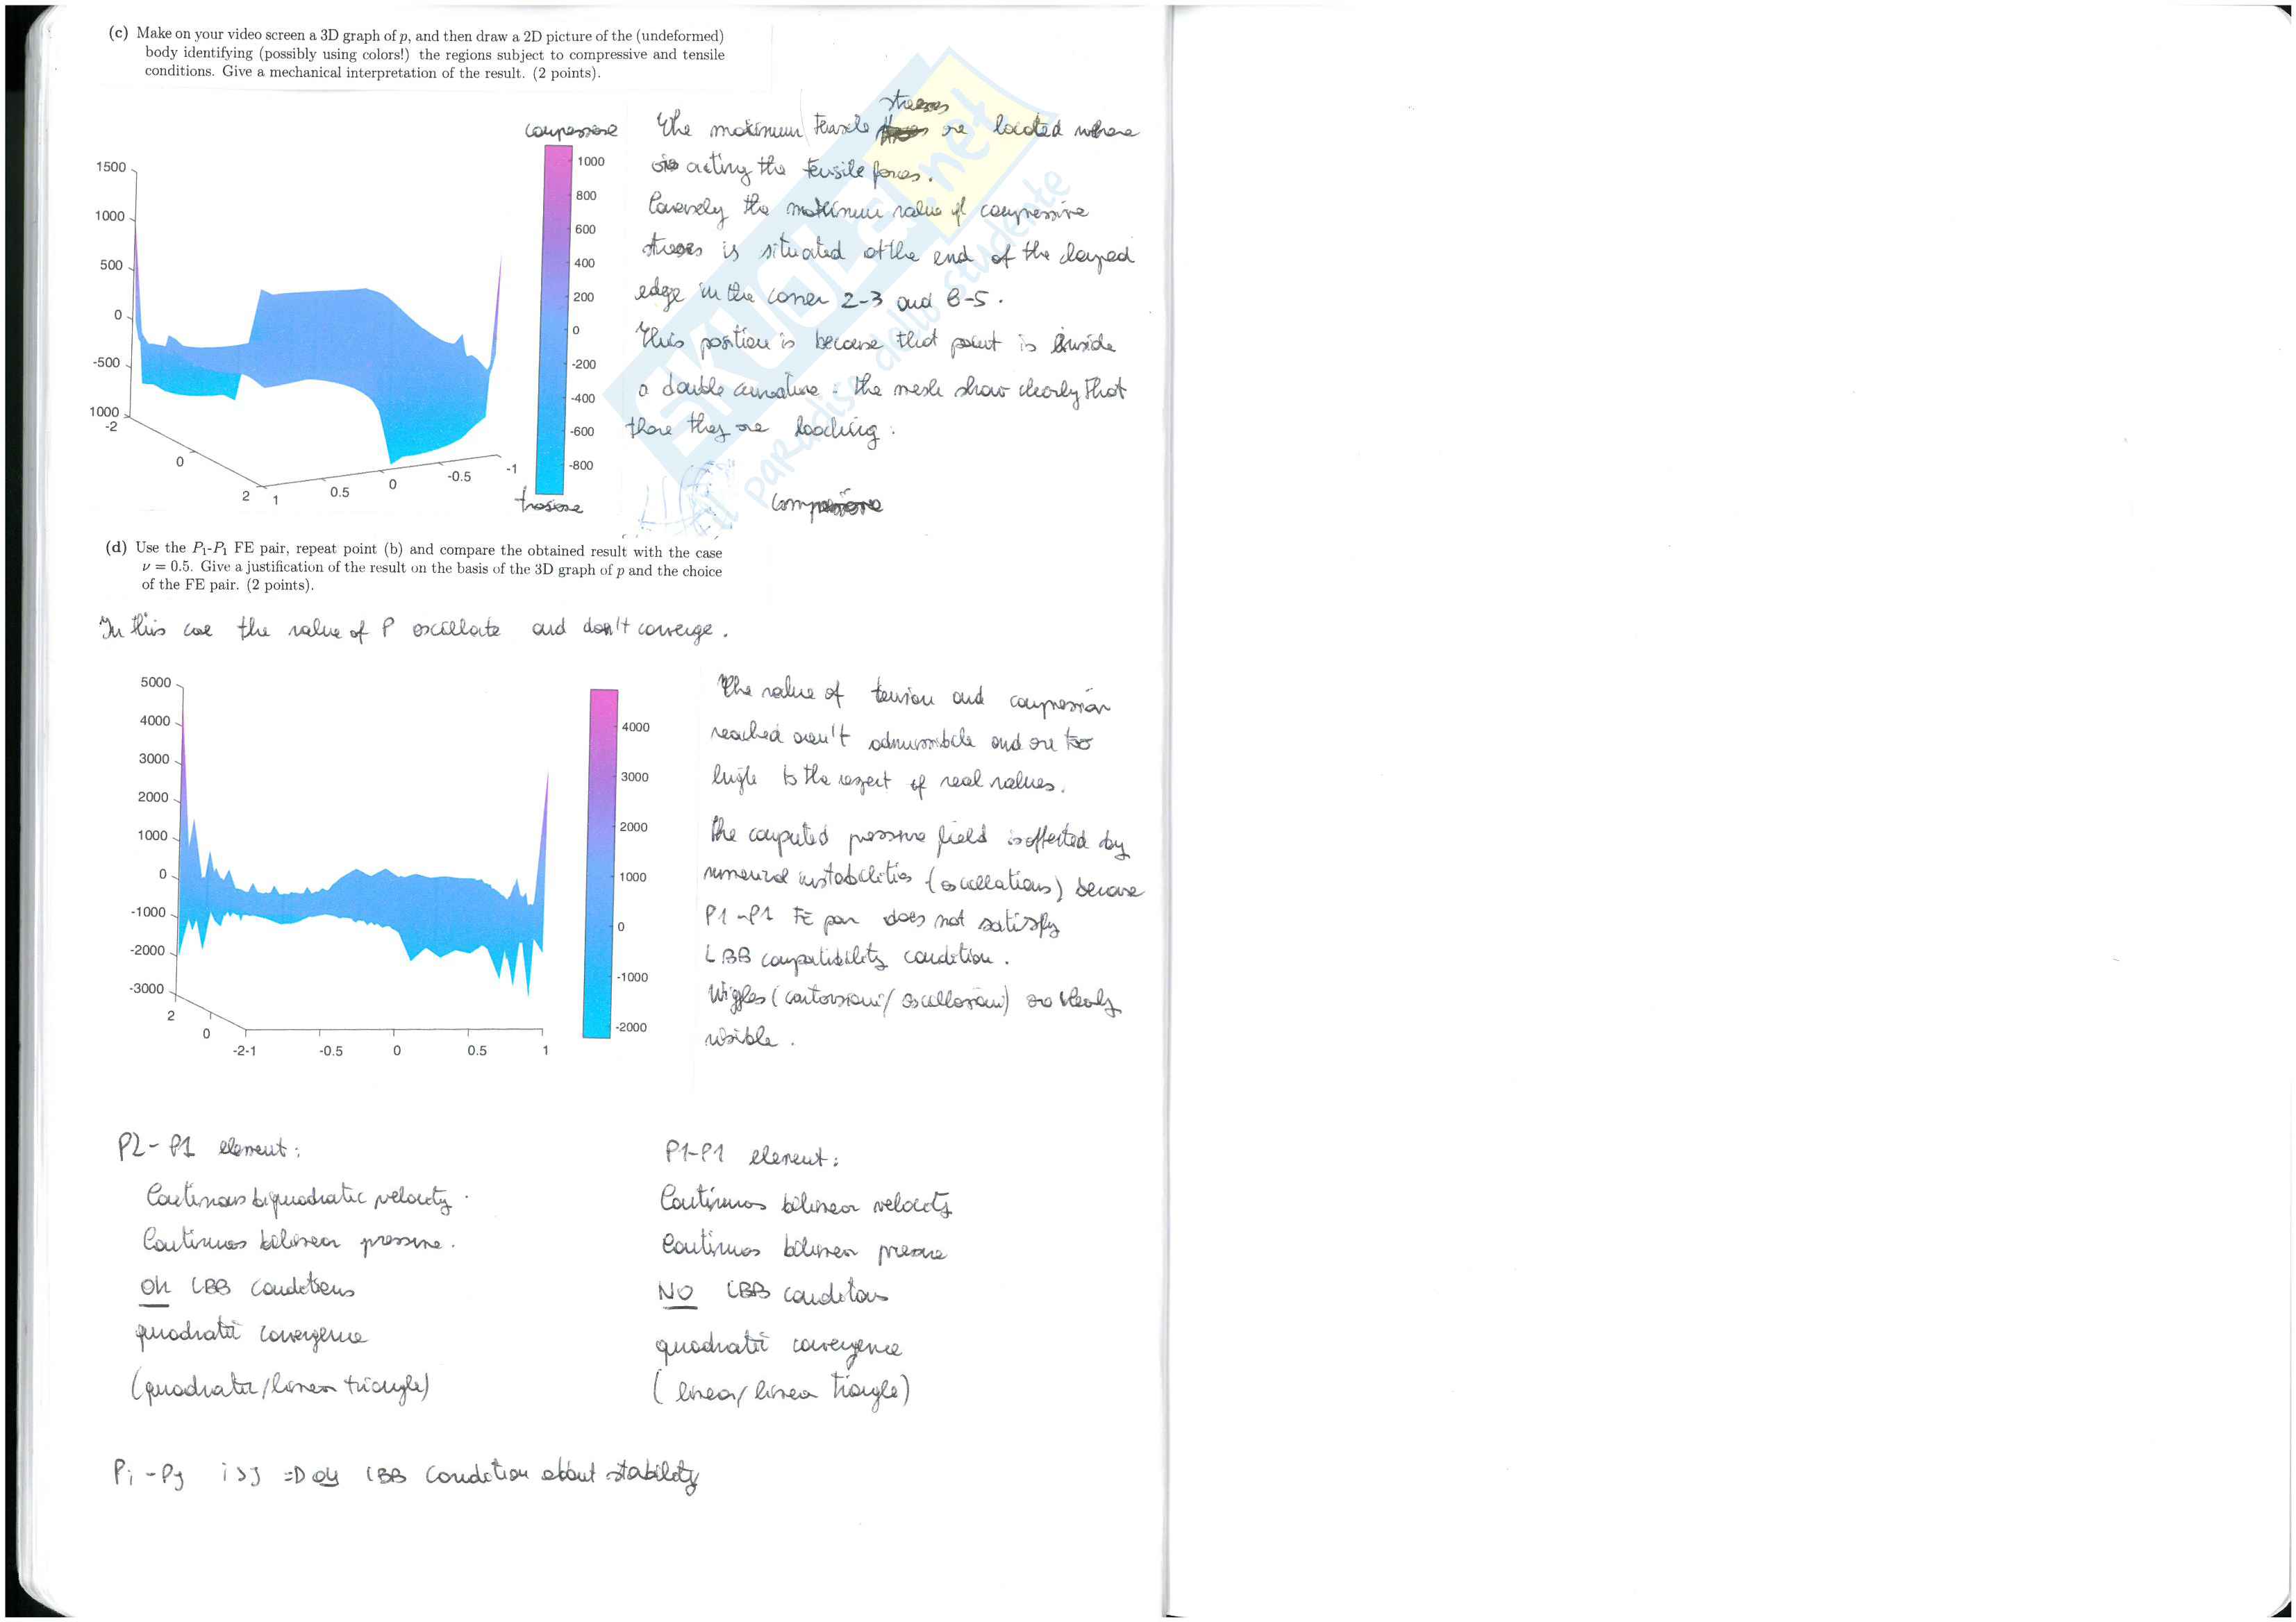 (c) Make on your video screen a 3D graph of p, and then draw a 2D picture of the (undeformed)
body identifying (possibly using colors!) the regions subject to compressive and tensile
conditions. Give a mechanical interpretation of the result. (2 points).
compressione
1500
1000
500
0
-500
1000
-2
0
2
1
0.5
0
-0.5
-1
1000
800
600
400
200
0
-200
-400
-600
-800
trazione
The maximum tensile stresses are located where
is acting the tensile forces.
Conversely the maximum value of compressive
stresses is situated at the end of the clamped
edge in the corner 2-3 and 6-5.
This position is because that point is inside
a double curvature. the mesh show clearly that
there they are loading.
compressione
SKUOLA.net
paradiso dello studente
(d) Use the P1-P1 FE pair, repeat point (b) and compare the obtained result with the case
ν = 0.5. Give a justification of the result on the basis of the 3D graph of p and the choice
of the FE pair. (2 points).
In this case the value of P oscillate and don't converge.
5000
4000
3000
2000
1000
0
-1000
-2000
-3000
2
0
-2-1
-0.5
0
0.5
1
4000
3000
2000
1000
0
-1000
-2000
The value of tension and compression
reached aren't admissible and are too
high to the respect of real values.
The computed pressure field is affected by
numerical instabilities (oscillations) because
P1-P1 FE pair does not satisfy
LBB compatibility condition.
Wiggles (contorsioni/oscillazioni) are clearly
visible.
P2-P1 element:
Continuos biquadratic velocity.
Continuos bilinear pressure.
Ok LBB conditions
quadratic convergence
(quadratic/linear triangle)
P1-P1 element:
Continuos bilinear velocity
Continuos bilinear pressure
NO LBB conditions
quadratic convergence
(linear/linear triangle)
Pi - Pj i>j => ok LBB condition about stability